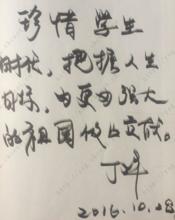 珍惜学生
时代，把握人生
目标，为更加强大
的祖国做出贡献。
2016.10.28